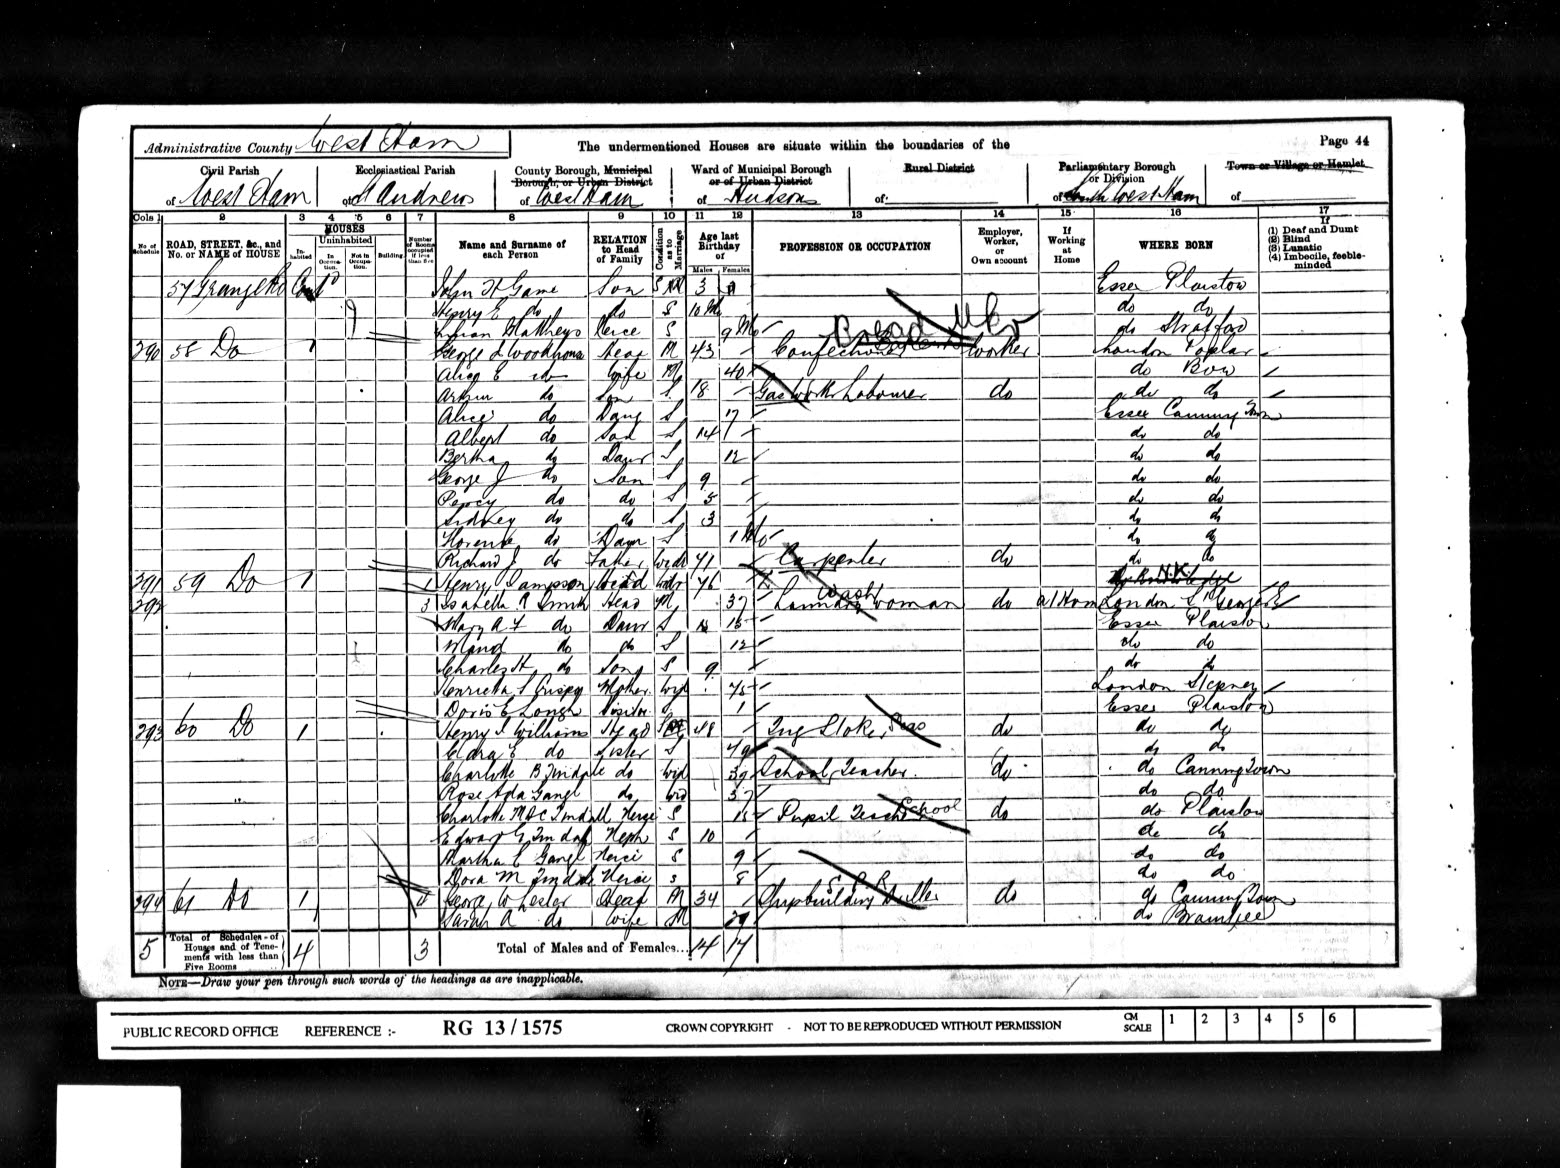 Administrative County West Ham
The undermentioned Houses are situate within the boundaries of the
Page 44
Civil Parish of West Ham
Ecclesiastical Parish of St Andrews
County Borough, Municipal Borough, or Urban District of West Ham
Ward of Municipal Borough or of Urban District of Hudsons
Rural District of
Parliamentary Borough or Division of South West Ham
Town or Village or Hamlet of
Cols 1 2 3 4 5 6 7 8 9 10 11 12 13 14 15 16 17
No. of Schedule
ROAD, STREET, &c., and No. or NAME of HOUSE
HOUSES
In-habited
Uninhabited
In Occupa-tion.
Not in Occupa-tion.
Building
Number of Rooms occupied if less than five
Name and Surname of each Person
RELATION to Head of Family
Condition as to Marriage
Age last Birthday of
Males Females
PROFESSION OR OCCUPATION
Employer, Worker, or Own account
If Working at Home
WHERE BORN
If
(1) Deaf and Dumb
(2) Blind
(3) Lunatic
(4) Imbecile, feeble-minded
57 Grange Rd Contd John H Game Son S 3 Essex Plaistow
Henry E do do S 10 Mo do do
Matthews Niece S 9 Mo do Stratford
290 58 Do 1 George Woodhouse Head M 43 Confectioner Bread worker London Poplar
Alice E do Wife M 40 do Bow
Arthur do Son S 18 Gas Work Labourer do do do
Alice do Daug S 17 Essex Canning Town
Albert do Son S 14 do do
Bertha do Daur S 12 do do
George J do Son S 9 do do
Percy do do S 5 do do
Sidney do do S 3 do do
Florence do Daur S 1 Mo do do
Richard J do Father Widr 71 Carpenter do do do
291 59 Do 1 1 Henry Sampson Head Widr 76 N.K.
292 3 Isabella R Smith Head M 37 Laundry Wash woman do at Home London St Georges E
Mary A do Daur S 15 Essex Plaistow
Maud do do S 12 do do
Charles H do Son S 9 do do
Henrietta S Crispy Mother Wid 75 London Stepney
Doris E Lough Visitor S 1 Essex Plaistow
293 60 Do 1 Henry Williams Head S 48 Eng Stoker Gas do do do
Clara E do Sister S 49 do do
Charlotte B Tindale do Wid 39 School Teacher do do Canning Town
Rose Ada Gangl do Wid 37 do do
Charlotte Tindall Niece S 15 Pupil Teacher School do do Plaistow
Edward G Tindall Neph S 10 do do
Martha E Gangl Niece S 9 do do
Dora M Tindale Niece S 8 do do
294 61 Do 1 George W Lester Head M 34 Shipbuilding Driller do do Canning Town
Sarah A do Wife M 29 do
5 Total of Schedules of Houses and of Tene-ments with less than Five Rooms 4 3 Total of Males and of Females... 14 17
NOTE—Draw your pen through such words of the headings as are inapplicable.
PUBLIC RECORD OFFICE REFERENCE :- RG 13/1575 CROWN COPYRIGHT - NOT TO BE REPRODUCED WITHOUT PERMISSION CM SCALE 1 2 3 4 5 6